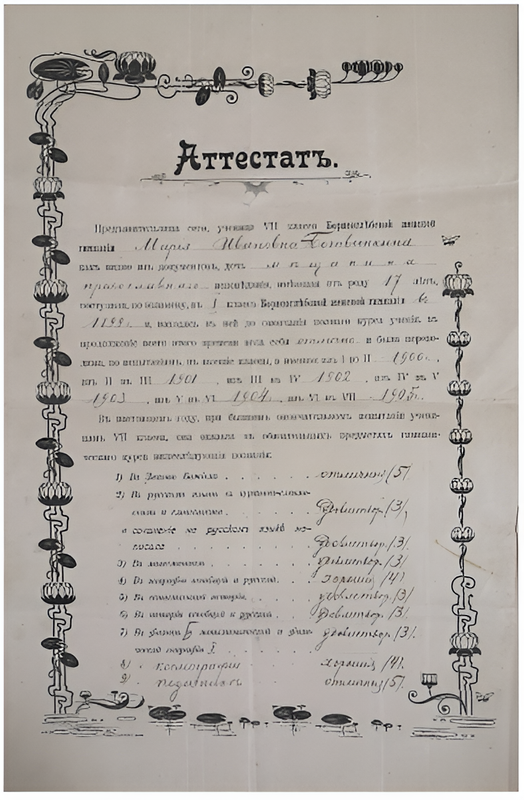 Аттестатъ.
Предъявительница сего, ученица VII класса Борисоглѣбской женской
гимназіи Марія Ивановна
какъ видно изъ документовъ, дочь мѣщанина
православнаго исповѣданія, имѣющая отъ роду 17 лѣтъ,
поступила, по экзамену, въ I классъ Борисоглѣбской женской гимназіи въ
и, находясь въ ней до окончанія полнаго курса ученія, въ
продолженіе всего этого времени вела себя отлично и была перево-
дима, по испытаніямъ, въ высшіе классы, а именно: изъ I во II 1900 г.,
изъ II въ III 1901, изъ III въ IV 1902, изъ IV въ V
1903, изъ V въ VI 1904, изъ VI въ VII 1905 г.
Въ настоящемъ году, при бывшемъ окончательномъ испытаніи учени-
цамъ VII класса, она оказала въ обязательныхъ предметахъ гимнази-
ческаго курса нижеслѣдующія познанія:
1) Въ Законѣ Божіемъ . . . . . отличныя (5).
2) Въ русскомъ языкѣ съ церковно-славян-
скимъ и словесности . . . . удовлетвор. (3),
а сочиненіе на русскомъ языкѣ на-
писала . . . . . удовлетвор. (3).
3) Въ математикѣ . . . . . удовлетвор. (3)
4) Въ географіи всеобщей и русской . . хорошія (4).
5) Въ естественной исторіи . . . удовлетвор. (3)
6) Въ исторіи всеобщей и русской . . удовлетвор. (3).
7) Въ физикѣ математической и физи-
ческой географіи . . . удовлетвор. (3).
8) космографіи хорошія (4).
9) педагогикѣ отличныя (5).